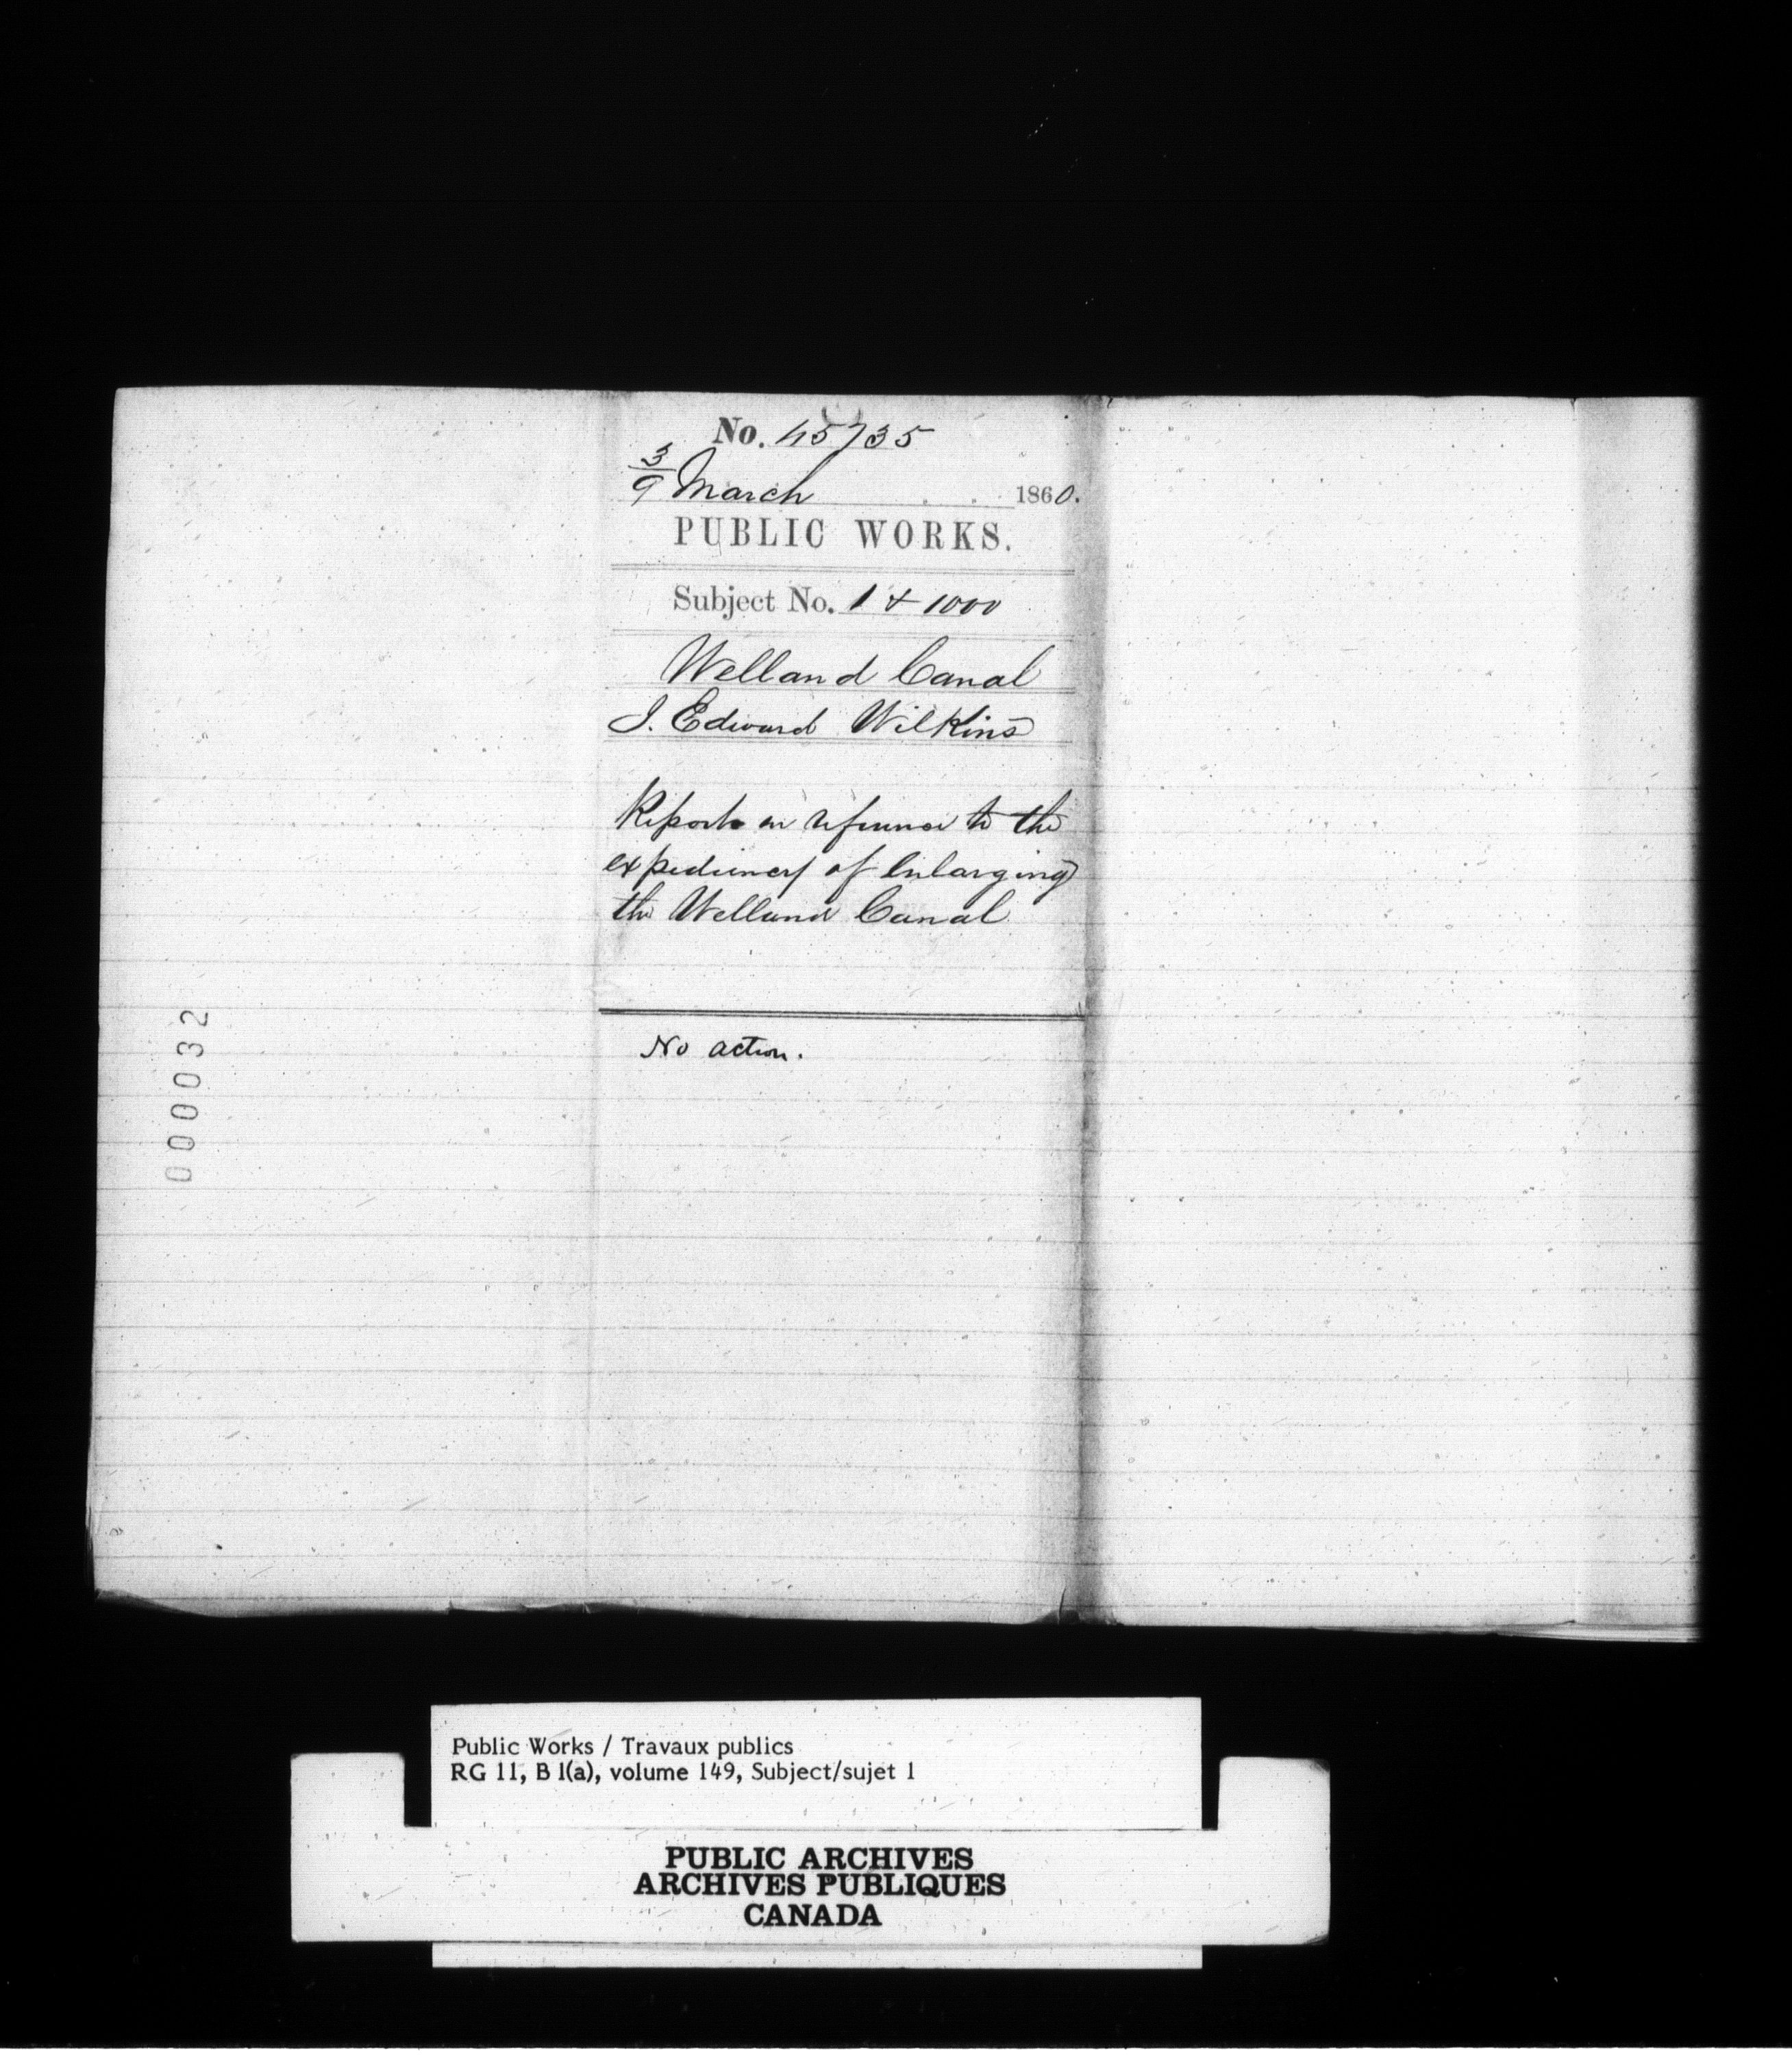 No. 45735
3/9 March 1860.
PUBLIC WORKS.
Subject No. 1 & 1000
Welland Canal
J. Edward Wilkins
Reports in reference to the
expediency of Enlarging
the Welland Canal
No action.
000032
Public Works / Travaux publics
RG 11, B 1(a), volume 149, Subject/sujet 1
PUBLIC ARCHIVES
ARCHIVES PUBLIQUES
CANADA